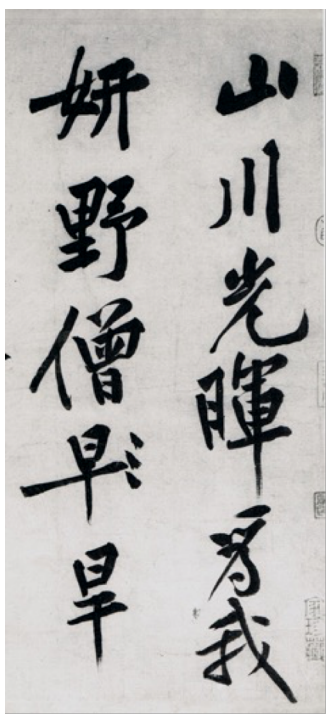 山川光暉爲我
妍野僧早旱